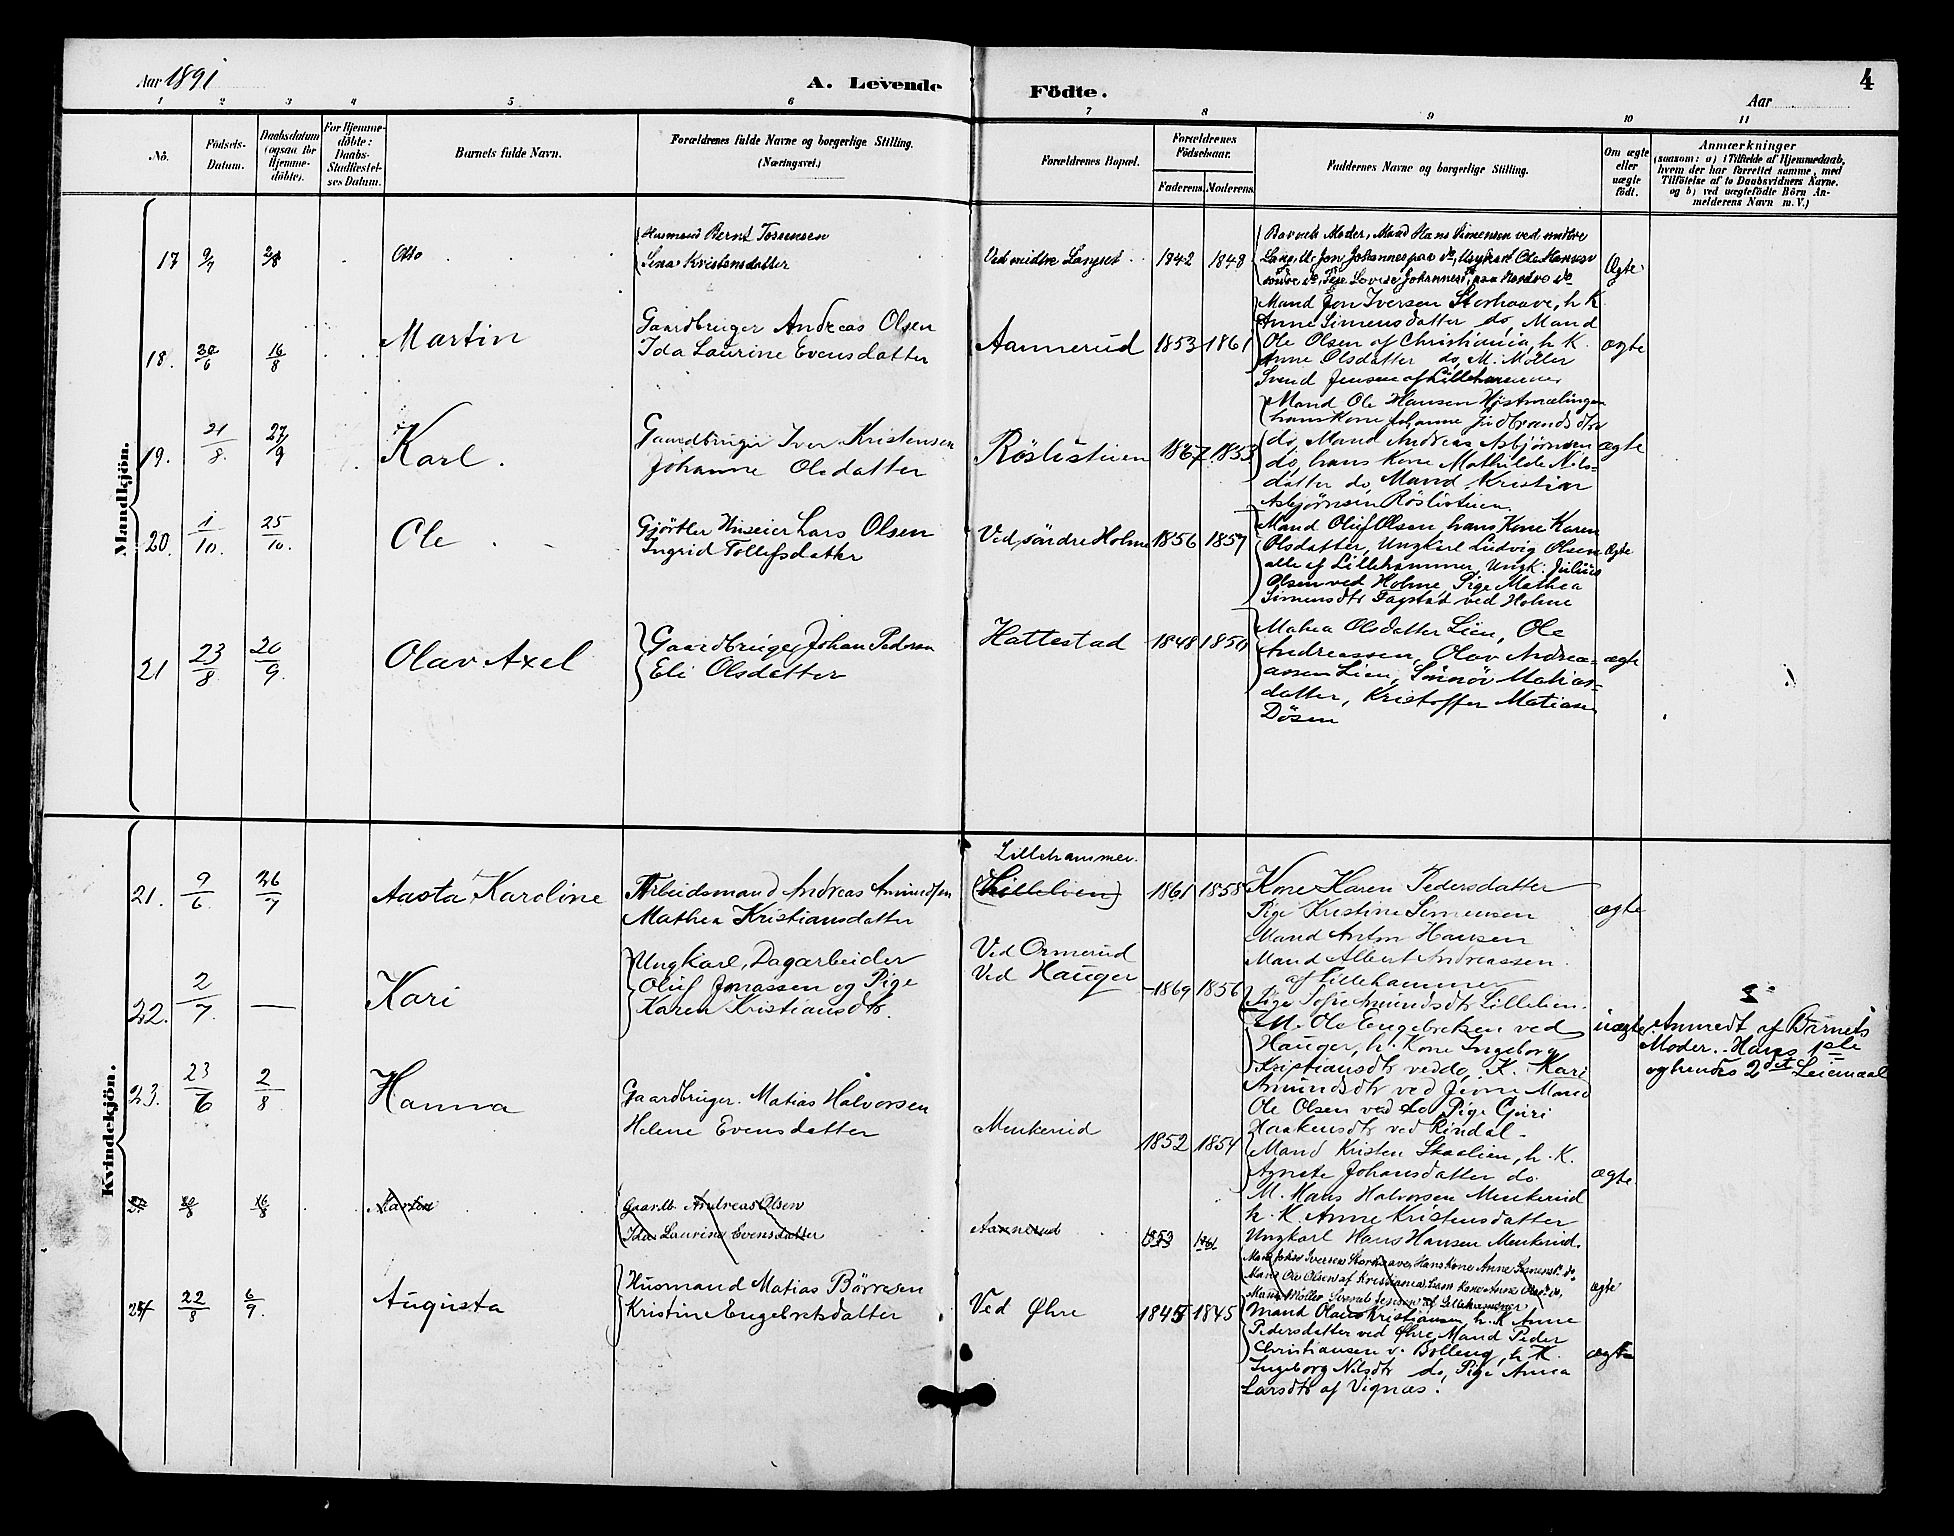 Aar 1891
A. Levende Födte.
Aar
4
1 2 3 4 5 6 7 8 9 10 11
No.
Födsels-Datum.
Daabsdatum (ogsaa for Hjemme-döbte).
For Hjemme-döbte: Daabs-Stadfæstel-ses Datum.
Barnets fulde Navn.
Forældrenes fulde Navne og borgerlige Stilling. (Næringsvei.)
Forældrenes Bopæl.
Forældrenes Födselsaar.
Faderens. Moderens.
Faddernes Navne og borgerlige Stilling.
Om ægte eller uægte födt.
Anmærkninger
(saasom: a) i Tilfælde af Hjemmedaab,
hvem der har forrettet samme, med
Tilföielse af to Daabsvidners Navne,
og b) ved uægtefödte Börn An-
melderens Navn m. V.)
Mandkjön.
17 9/7 2/8 Otto
Husmand Bernt Torsensen
Lina Kristensdatter
Ved midtre Langset 1842 1848
Barnets Moder, Mand Hans Simensen ved midtre
Lang. M. Jon Johannes paa do, Ungkarl Ole Hansen
søndre do, Pige Lovise Johannesd. paa Nordre do
Ægte
18. 30/6 16/8 Martin
Gaardbruger Andreas Olsen
Ida Laurine Evensdatter
Aannerud 1853 1861
Mand Jon Iversen Storhaave, h. K.
Anne Simensdatter do, Mand
Ole Olsen af Christiania, h. K.
Anne Olsdatter do, M. Möller
Svend Jensen af Lillehammer
ægte
19. 21/8. 27/9 Karl.
Gaardbruger Iver Kristensen
Johanne Olsdatter
Röslistuen 1867 1853
Mand Ole Hansen Høstmælingen
hans Kone Johanne Gudbrandsdtr
do, Mand Andreas Asbjørnsen
do, hans Kone Mathilde Nils-
datter do, Mand Kristian
Asbjørnsen Röslistuen.
ægte
20. 1/10. 25/10. Ole
Gjörtler Huseier Lars Olsen
Ingrid Tollefsdatter
Ved söndre Holme 1856 1857
Mand Oluf Olsen, hans Kone Karen
Olsdatter, Ungkarl Ludvig Olsen
alle af Lillehammer, Ungk: Julius
Olsen ved Holme, Pige Mathea
Simensdtr Fagstad ved Holme
Ægte
21 23/8 20/9. Olav Axel
Gaardbruger Johan Pedersen
Eli Olsdatter
Hattestad 1848 1850
Mathea Olsdatter Lien, Ole
Andreassen, Olav Andrea-
assen Lien, Sönnöv Matias-
datter, Kristoffer Matiasen
Dösen
ægte
Kvindekjön.
21. 9/6 26/7 Aasta Karoline
Arbeidsmand Andreas Amundsen
Mathea Kristiansdatter
Lillehammer.
(Lillelien) 1861 1858
Kone Karen Pedersdatter
Pige Kristine Simensen
Mand Anton Hansen
Mand Albert Andreassen.
af Lillehammer
Pige Sofie Amundsdtr Lillelien.
ægte
22. 2/7. — Kari
Ungkarl, Dagarbeider
Oluf Jonassen og Pige
Karen Kristiansdtr.
Ved Ormerud
Ved Hauger 1869 1856
M. Ole Engebretsen ved
Hauger, h. Kone Ingeborg
Kristiansdtr ved do, K. Kari
Amundsdtr ved Jevne Mand
Ole Olsen ved do Pige Guri
Haakensdtr ved Rindal.
uægte
Anmedt af Barnets
Moder. Hans 1ste
og hendes 2det Leiemaal
23. 23/6 2/8 Hanna
Gaardbruger. Matias Halvorsen
Helene Evensdatter
Menkerud 1852 1854
Mand Kristen Skaelien, h. K.
Agnete Johansdatter do.
M. Hans Halvorsen Menkerud
h. K. Anne Kristensdatter
Ungkarl Hans Hansen Menkerud.
ægte
16/8 Martin
Gaardb. Andreas Olsen
Ida Laurine Evensdatter
Aannerud 1853 1861
Mand Johan Iversen Storhaave, Hans Kone Anne Simensd. do
Mand Ole Olsen af Kristiania, ham Kone Anne Olsd. do,
Mand Möller Svend Jensen af Lillehammer
ægte
24 22/8 6/9. Augusta
Husmand Matias Börresen
Kristine Engebretsdatter
Ved Øhre 1845 1845
Mand Olaus Kristiansen, h. K. Anne
Pedersdatter ved Øhre, Mand Peder
Christiansen v. Bolleng, h. K.
Ingeborg Nilsdtr do, Pige Anna
Larsdtr af Vignæs.
ægte